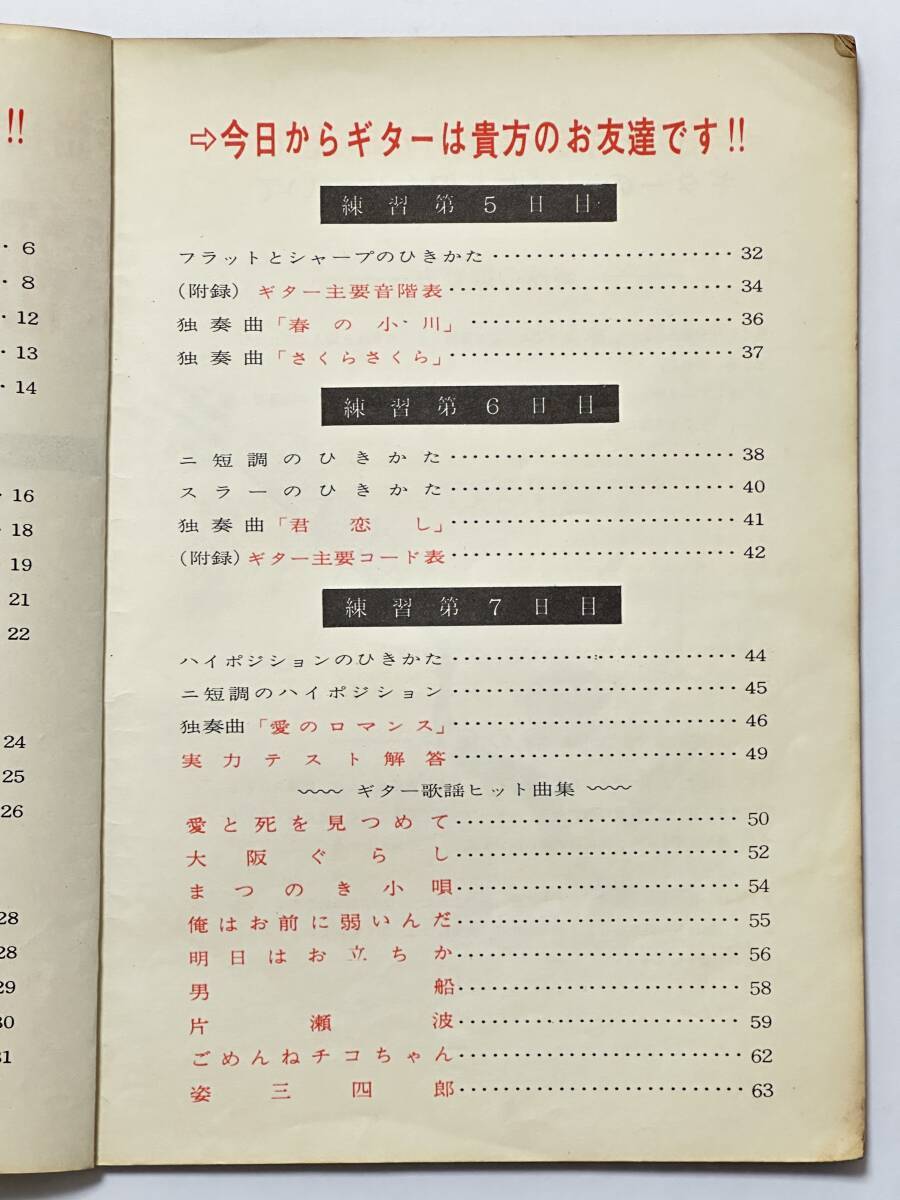 !!
6
8
12
13
14
16
18
19
21
22
24
25
26
28
28
29
30
31
⇨今日からギターは貴方のお友達です!!
練習第5日目
フラットとシャープのひきかた 32
(附録) ギター主要音階表 34
独奏曲「春の小川」 36
独奏曲「さくらさくら」 37
練習第6日目
ニ短調のひきかた 38
スラーのひきかた 40
独奏曲「君恋し」 41
(附録) ギター主要コード表 42
練習第7日目
ハイポジションのひきかた 44
ニ短調のハイポジション 45
独奏曲「愛のロマンス」 46
実力テスト解答 49
ギター歌謡ヒット曲集
愛と死を見つめて 50
大阪ぐらし 52
まつのき小唄 54
俺はお前に弱いんだ 55
明日はお立ちか 56
男船 58
片瀬波 59
ごめんねチコちゃん 62
姿三四郎 63